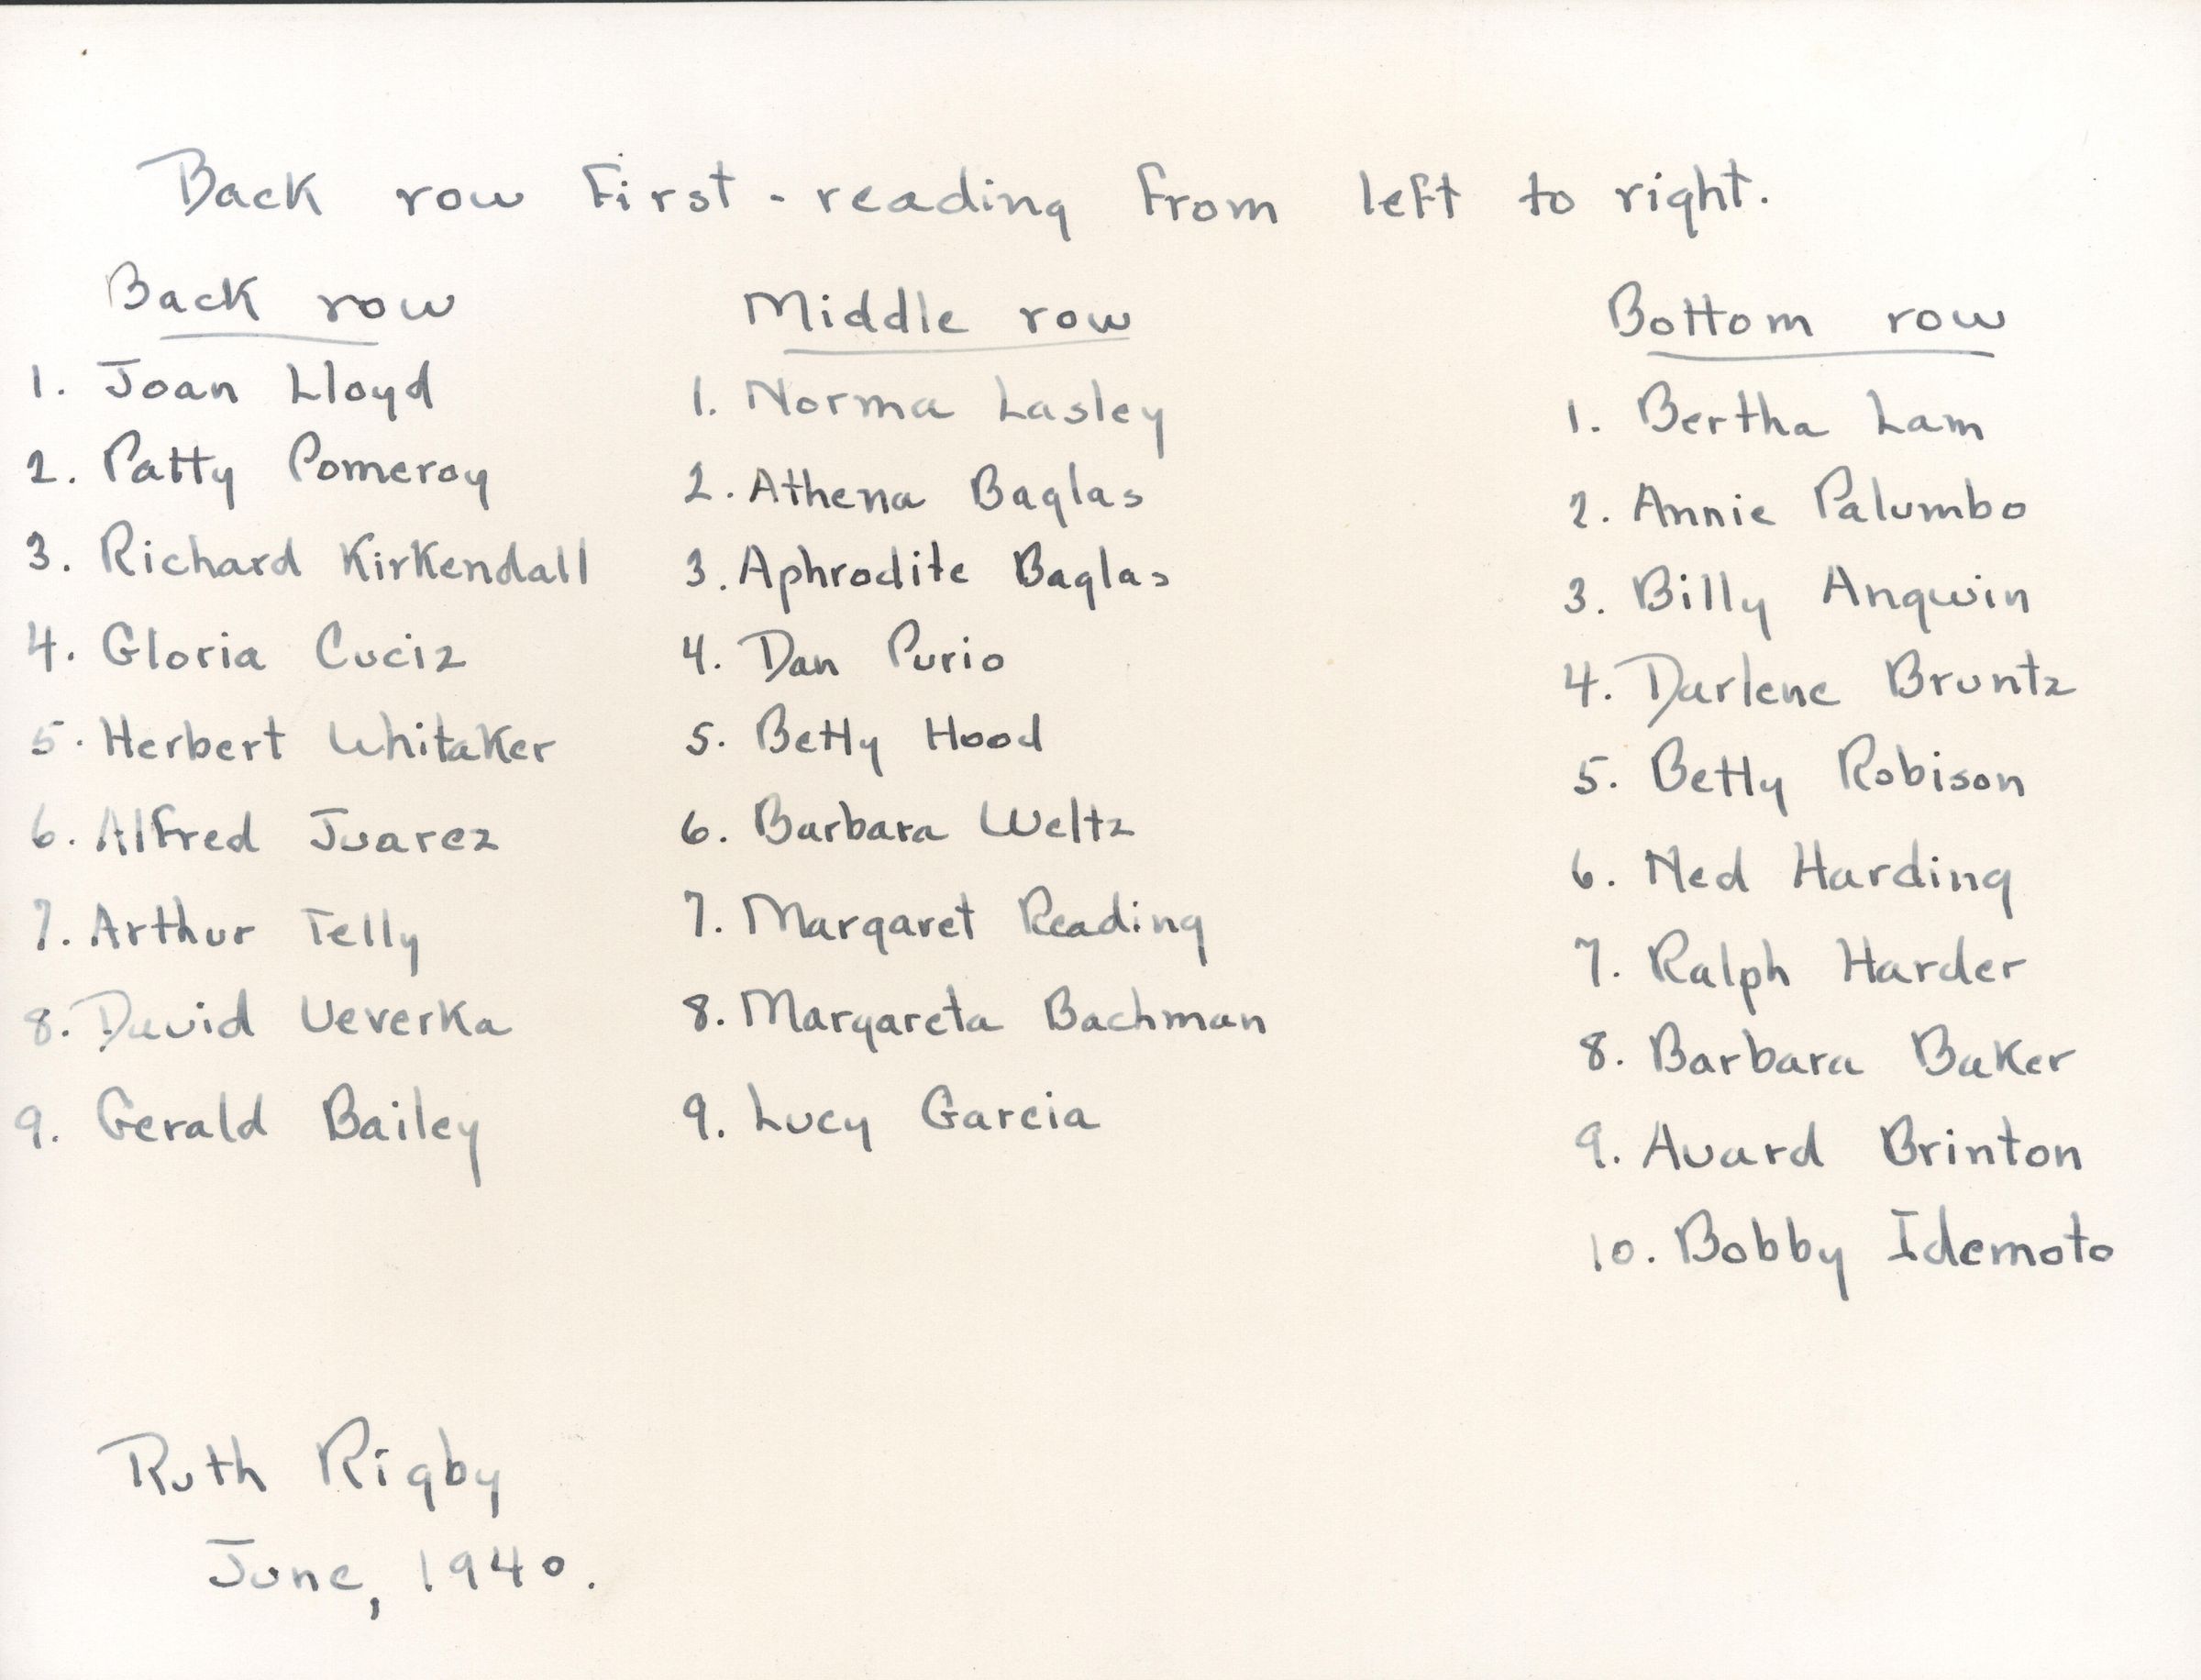 Back row First - reading from left to right.
Back row
1. Joan Lloyd
2. Patty Pomeroy
3. Richard Kirkendall
4. Gloria Cuciz
5. Herbert Whitaker
6. Alfred Juarez
7. Arthur Telly
8. David Ueverka
9. Gerald Bailey
Middle row
1. Norma Lasley
2. Athena Baglas
3. Aphrodite Baglas
4. Dan Purio
5. Betty Hood
6. Barbara Weltz
7. Margaret Reading
8. Margareta Bachman
9. Lucy Garcia
Bottom row
1. Bertha Lam
2. Annie Palumbo
3. Billy Angwin
4. Darlene Bruntz
5. Betty Robison
6. Ned Harding
7. Ralph Harder
8. Barbara Baker
9. Avard Brinton
10. Bobby Idemoto
Ruth Rigby
June, 1940.